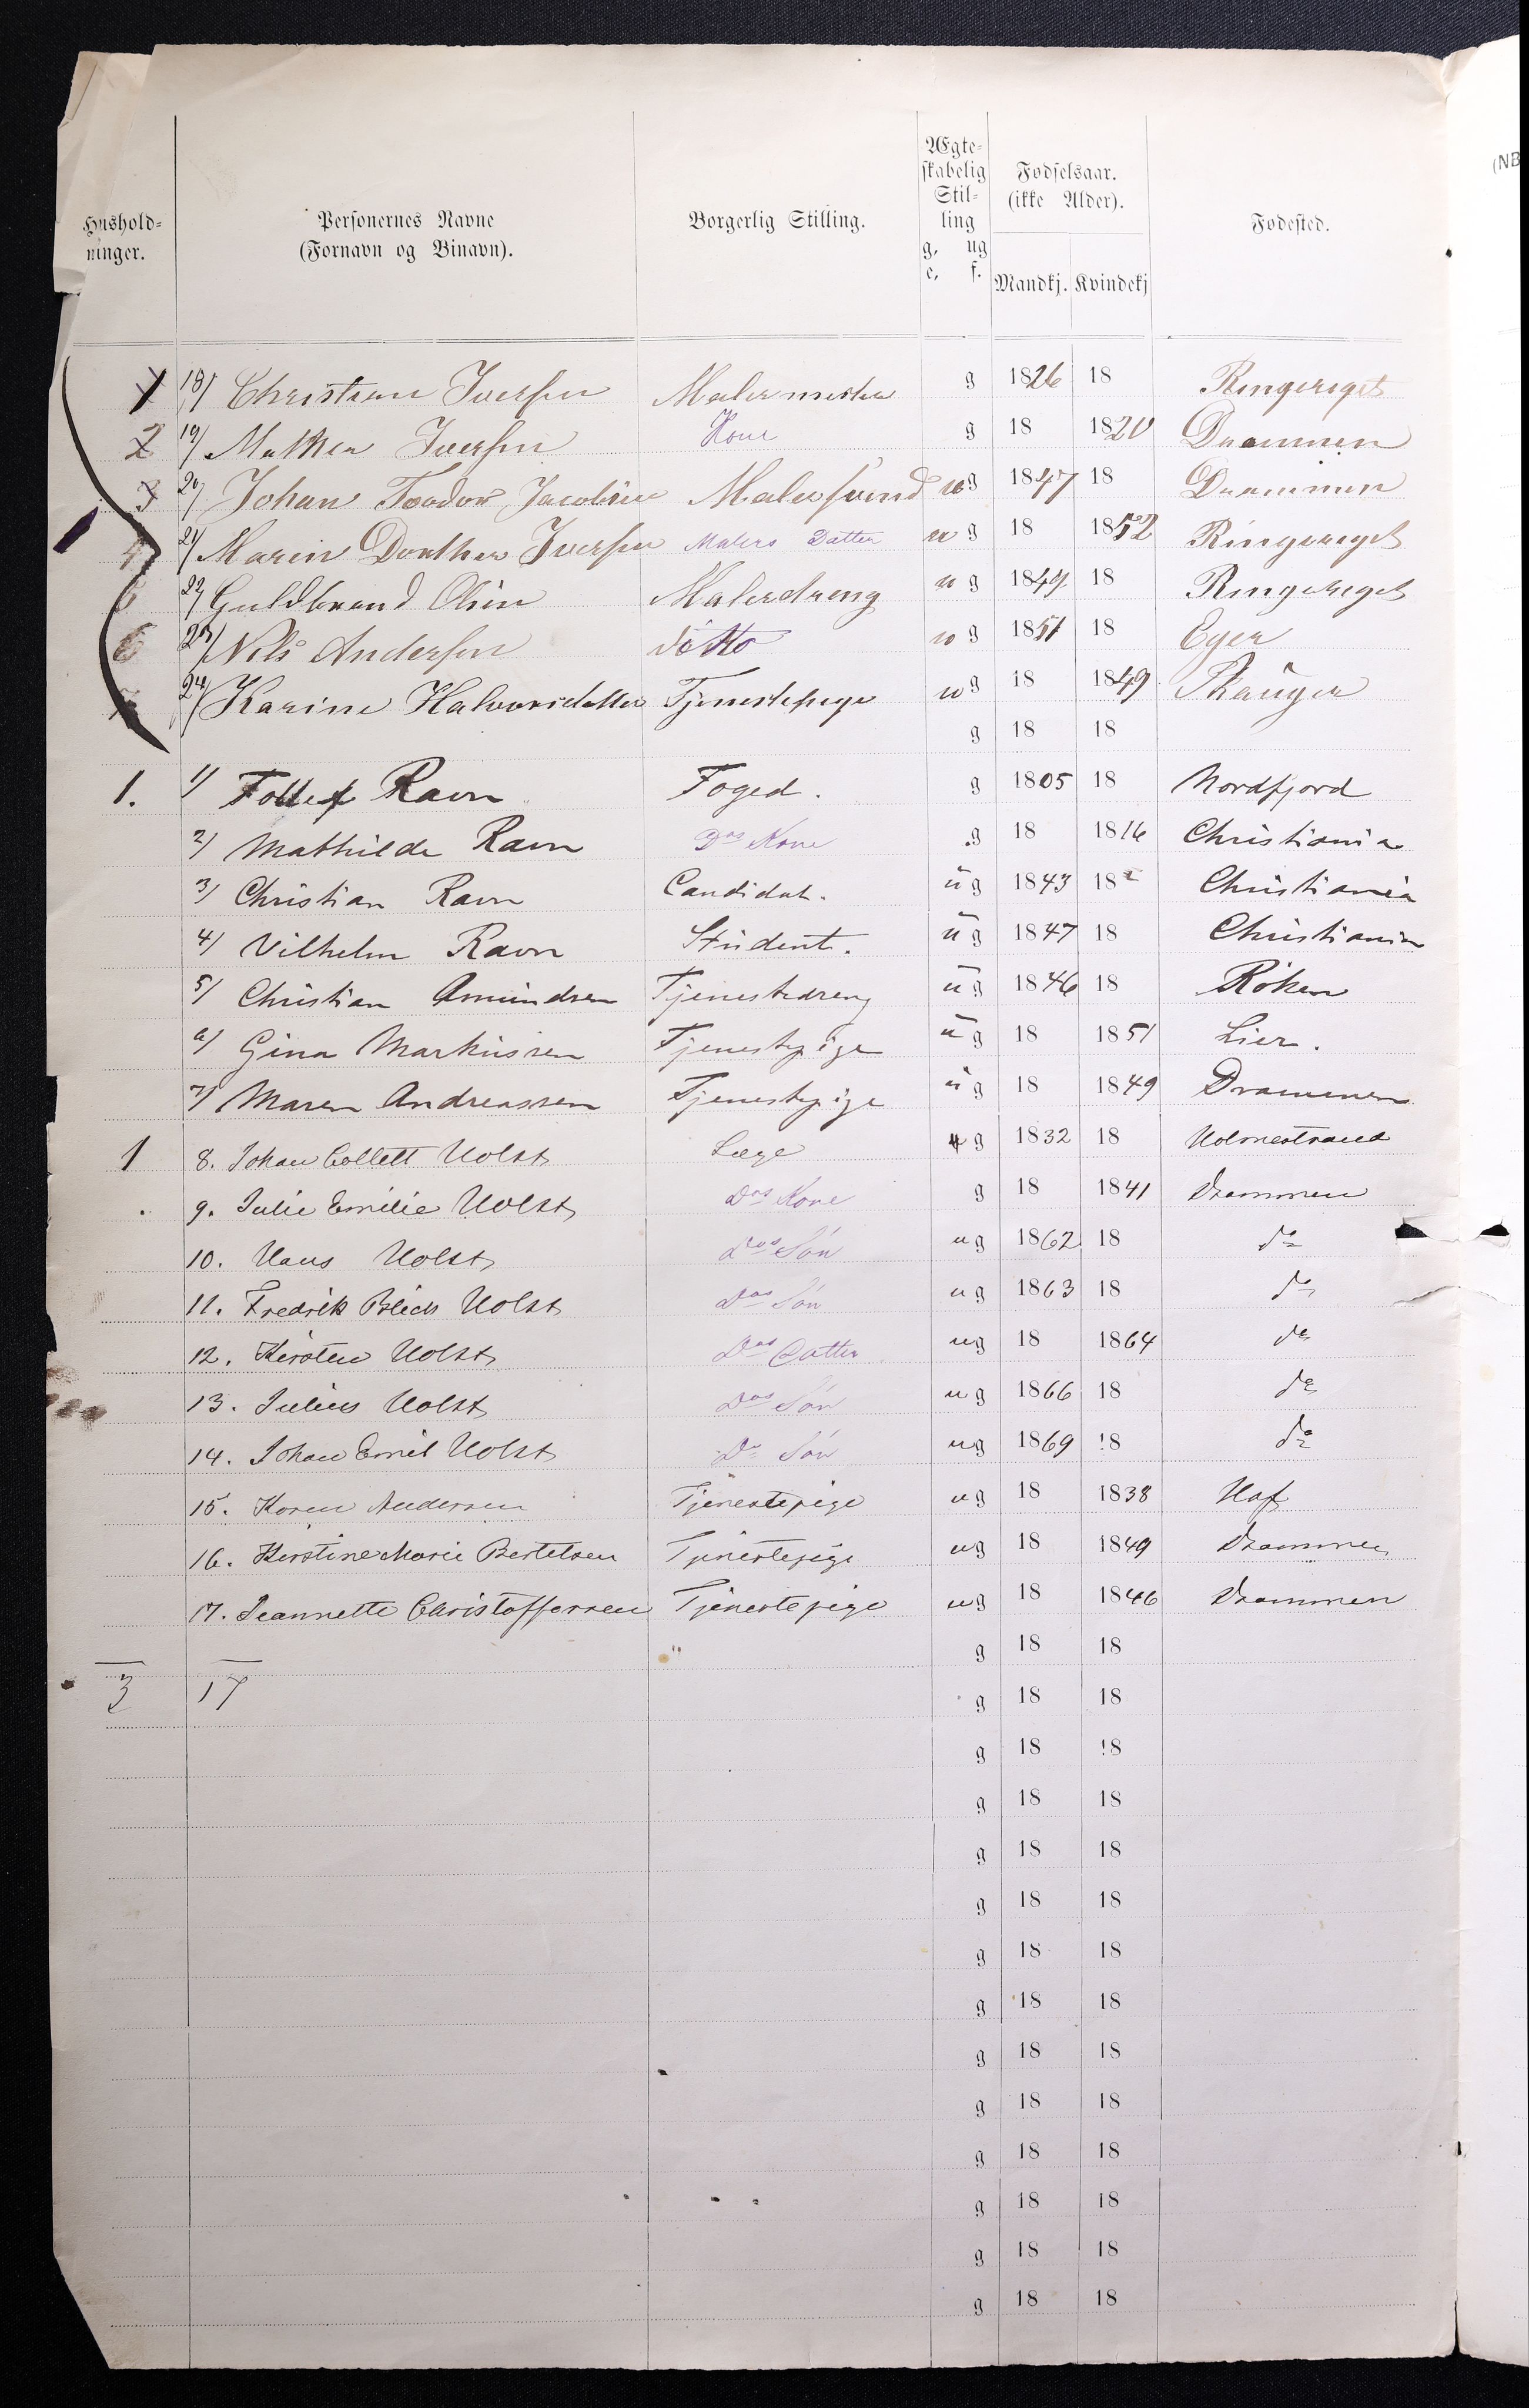 Hushold-
ninger.
Personernes Navne
(Fornavn og Binavn).
Borgerlig Stilling.
Ægte-
skabelig
Stil-
ling
g. ug
e. f.
Fødselsaar.
(ikke Alder).
Mandkj. Kvindekj
Fødested.
(NB
1 18/ Christian Iversen Malermester g 1826 18 Ringeriget
2 19/ Mathea Iversen Kone g 18 1820 Drammen
3 20/ Johan Teodor Jacobsen Malersvend ug 1847 18 Drammen
4 21/ Maren Dorthea Iversen Malers Datter ug 18 1852 Ringeriget
5 22/ Guldbrand Olsen Malerdreng ug 1849 18 Ringeriget
6 23/ Nils Andersen ditto ug 1851 18 Eger
7 24/ Karine Halvorsdatter Tjenestepige ug 18 1849 Skauger
g 18 18
1. 1/ Tollef Ravn Foged. g 1805 18 Nordfjord
2/ Mathilde Ravn Ds Kone g 18 1816 Christiania
3/ Christian Ravn Candidat. ug 1843 18 Christiania
4/ Vilhelm Ravn Student. ug 1847 18 Christiania
5/ Christian Amundsen Tjenestedreng ug 1846 18 Röken
6/ Gina Markussen Tjenestepige ug 18 1851 Lier.
7/ Maren Andreassen Tjenestepige ug 18 1849 Drammen
1 8. Johan Collett Holst Læge g 1832 18 Holmestrand
9. Julie Emilie Holst Ds Kone g 18 1841 Drammen
10. Hans Holst Ds Søn ug 1862 18 do
11. Fredrik Blich Holst Ds Søn ug 1863 18 do
12. Kirsten Holst Ds Datter ug 18 1864 do
13. Julius Holst Ds Søn ug 1866 18 do
14. Johan Emil Holst Ds Søn ug 1869 18 do
15. Karen Andersen Tjenestepige ug 18 1838 Hof
16. Kirstine Marie Bertelsen Tjenestepige ug 18 1849 Drammen
17. Jeannette Christoffersen Tjenestepige ug 18 1846 Drammen
g 18 18
3 17 g 18 18
g 18 18
g 18 18
g 18 18
g 18 18
g 18 18
g 18 18
g 18 18
g 18 18
g 18 18
g 18 18
g 18 18
g 18 18